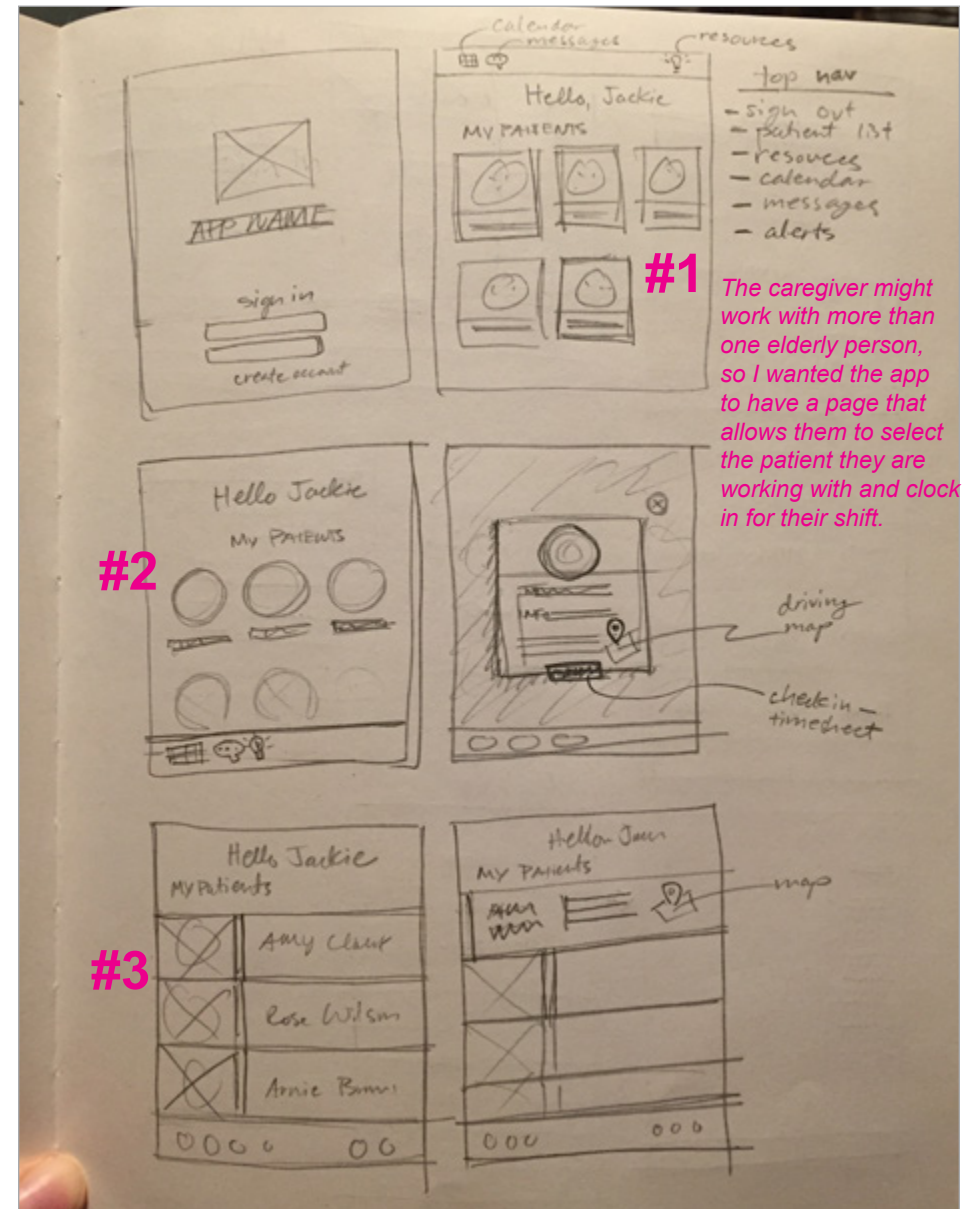 calendar
messages
resources
APP NAME
sign in
create account
Hello, Jackie
MY PATIENTS
top nav
- sign out
- patient list
- resouces
- calendar
- messages
- alerts
#1
The caregiver might
work with more than
one elderly person,
so I wanted the app
to have a page that
allows them to select
the patient they are
working with and clock
in for their shift.
#2
Hello Jackie
MY PATIENTS
INFO
driving
map
check in -
timesheet
#3
Hello Jackie
My Patients
Amy
Rose Wilson
Arnie
Hello
MY PATIENTS
map